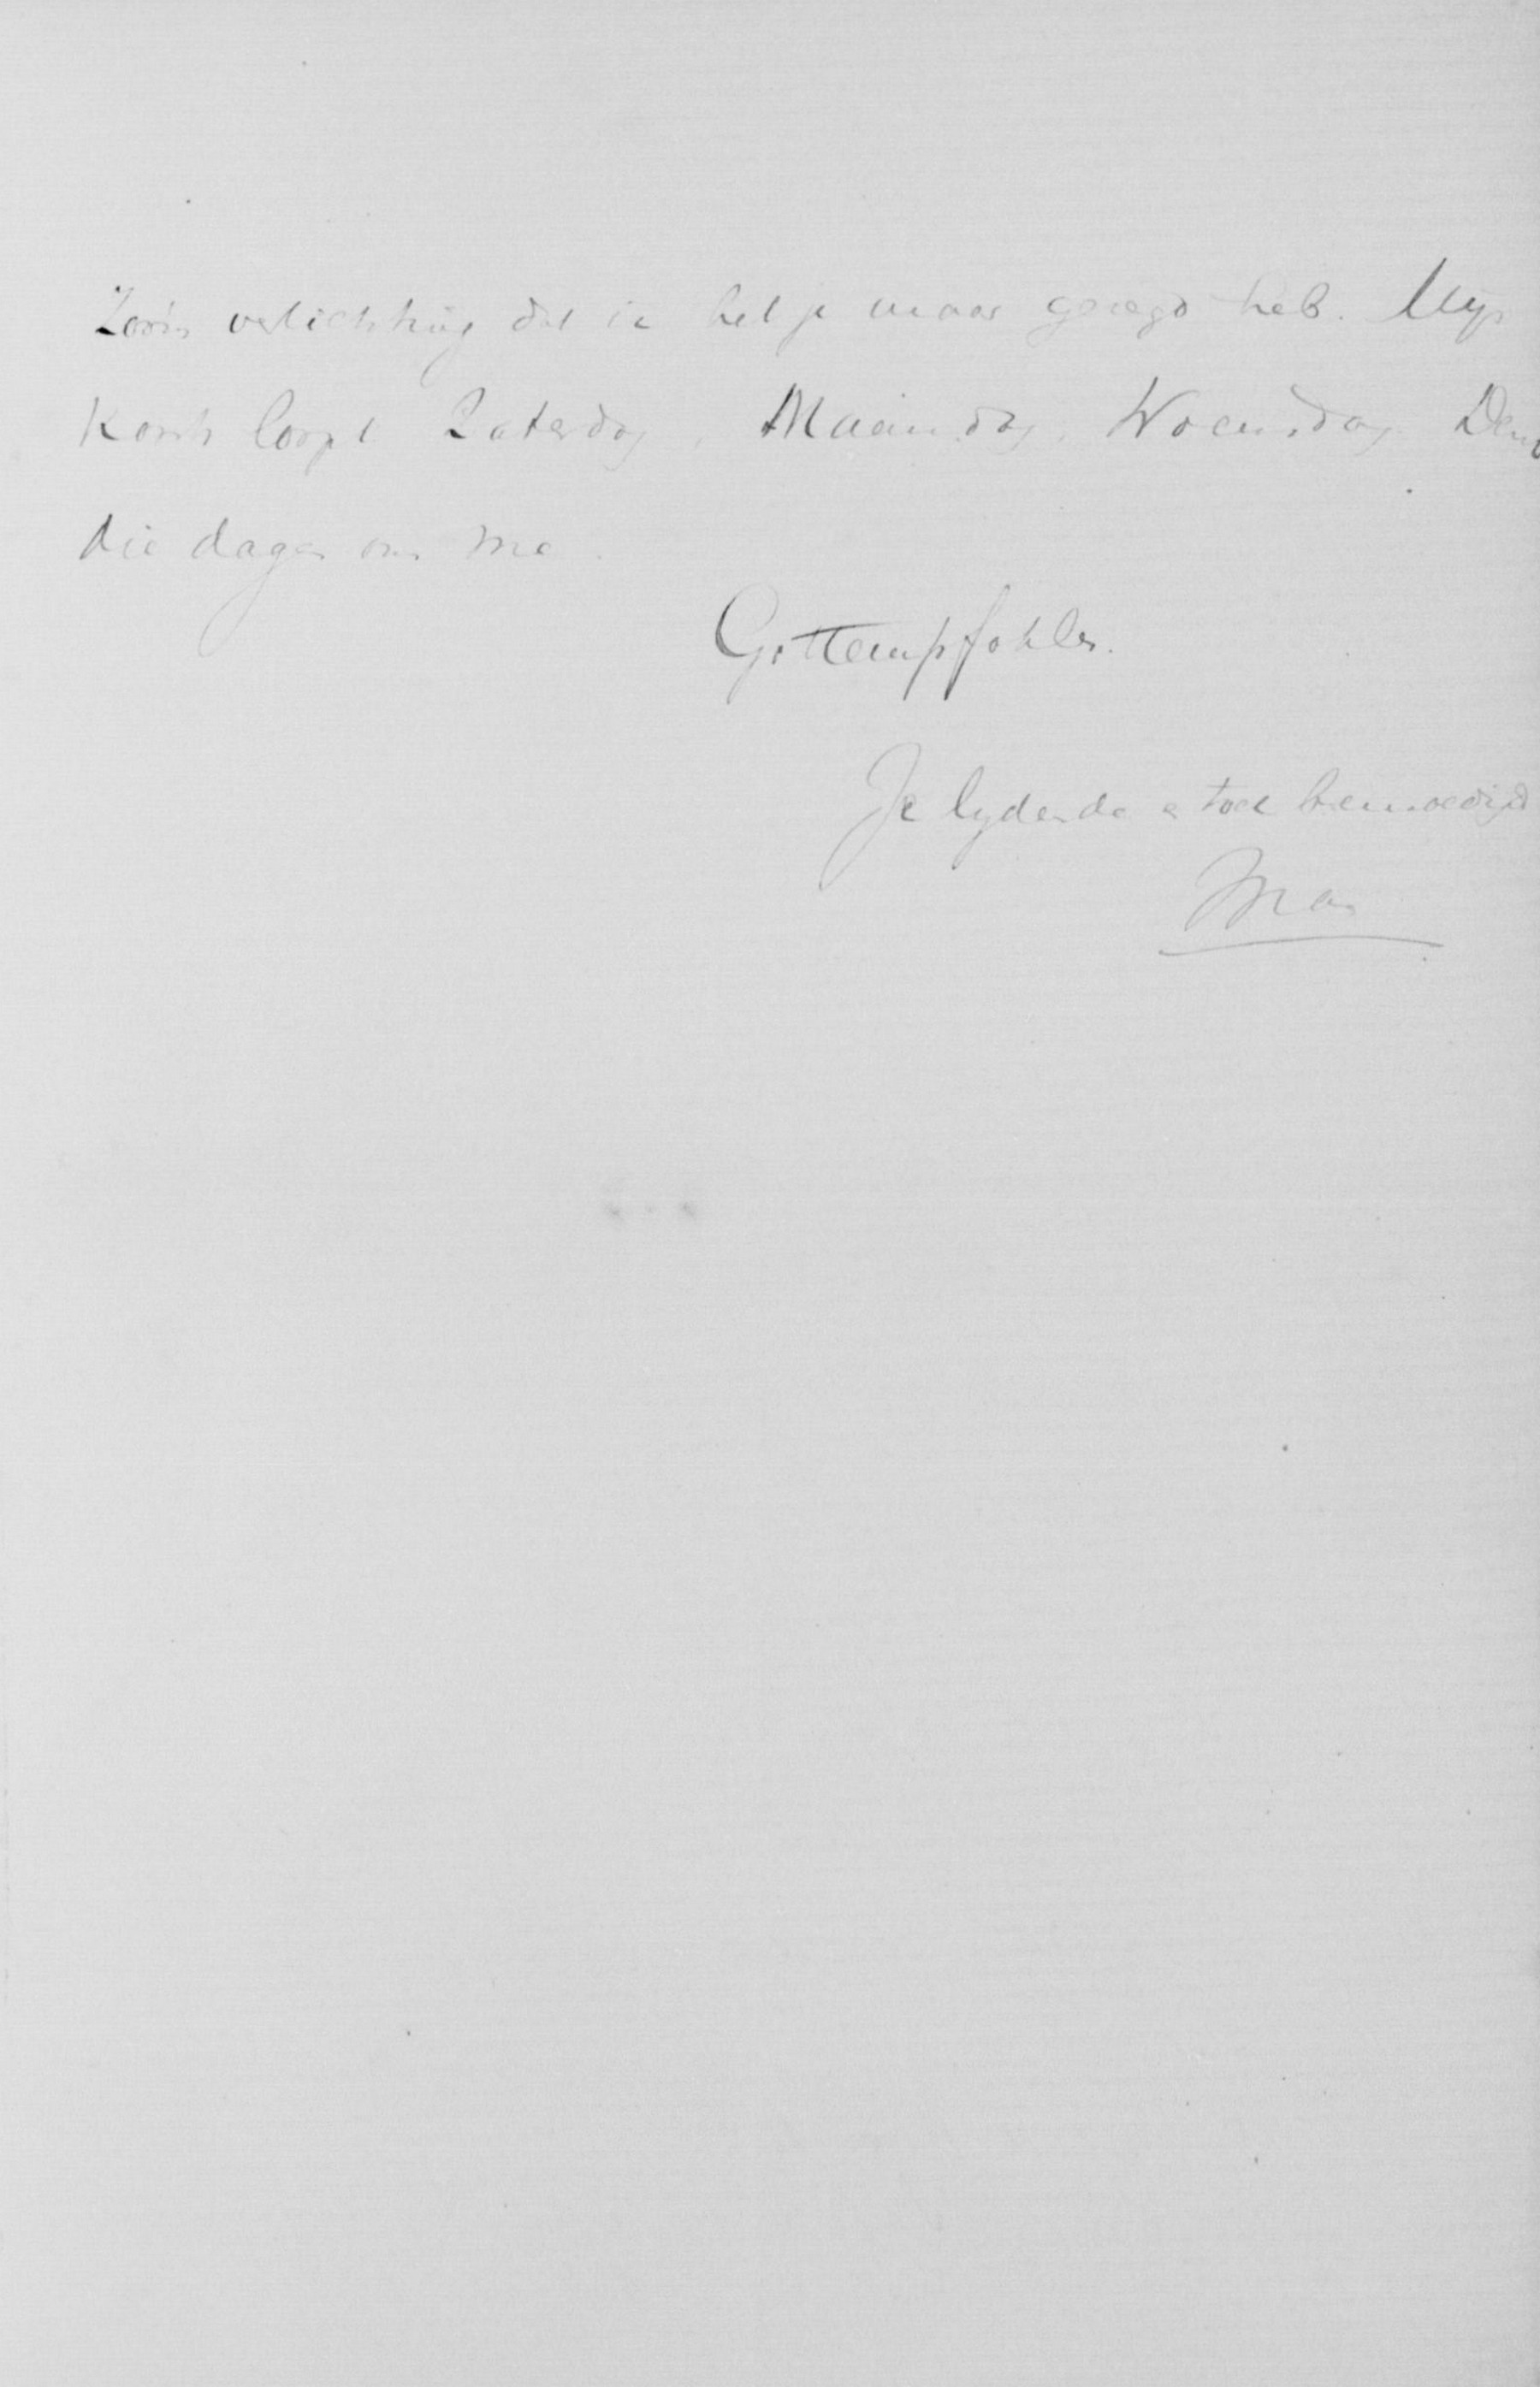 Zoo'n verlichting dat ik het je maar gezegd heb. Mijn
koorts loopt Zaterdag, Maandag, Woensdag. Denk
die dagen om me.
Gottempfohlen.
Je lijdende en toch bemoedigd
Man